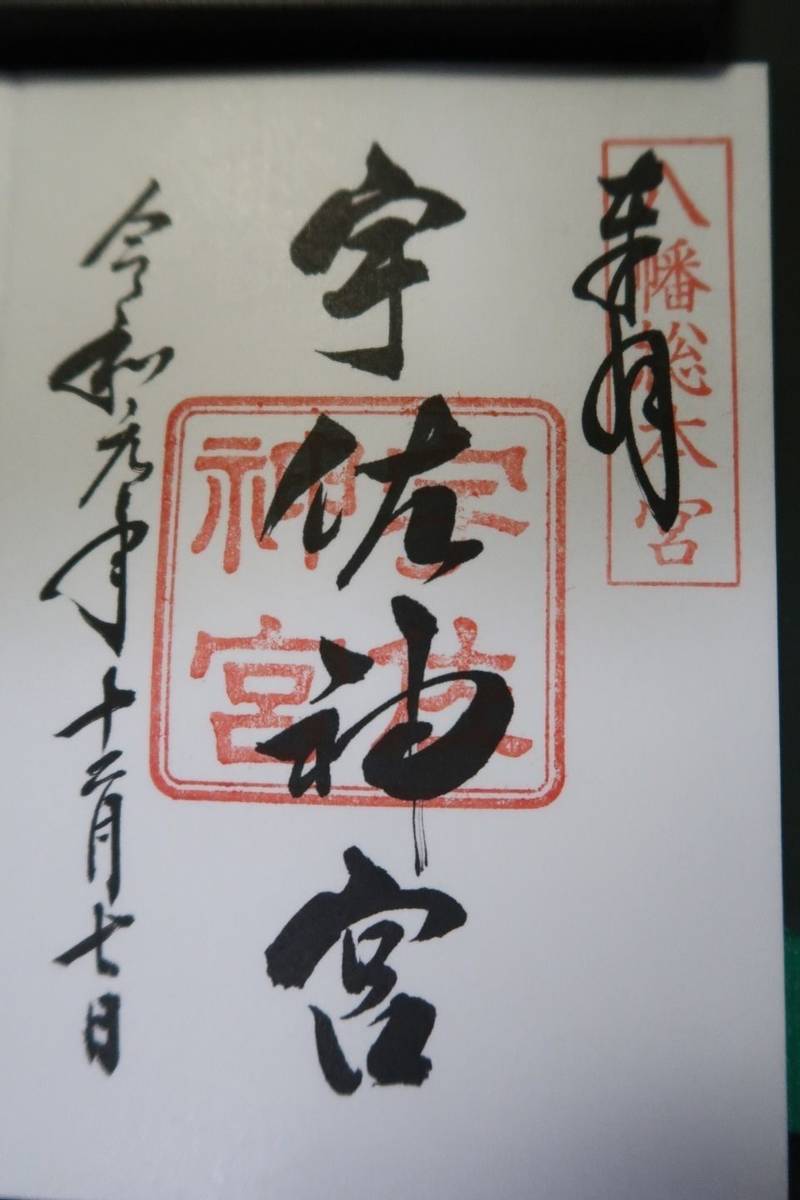 八幡総本宮
奉拝
宇佐神宮
宇佐
神宮
令和元年十二月七日